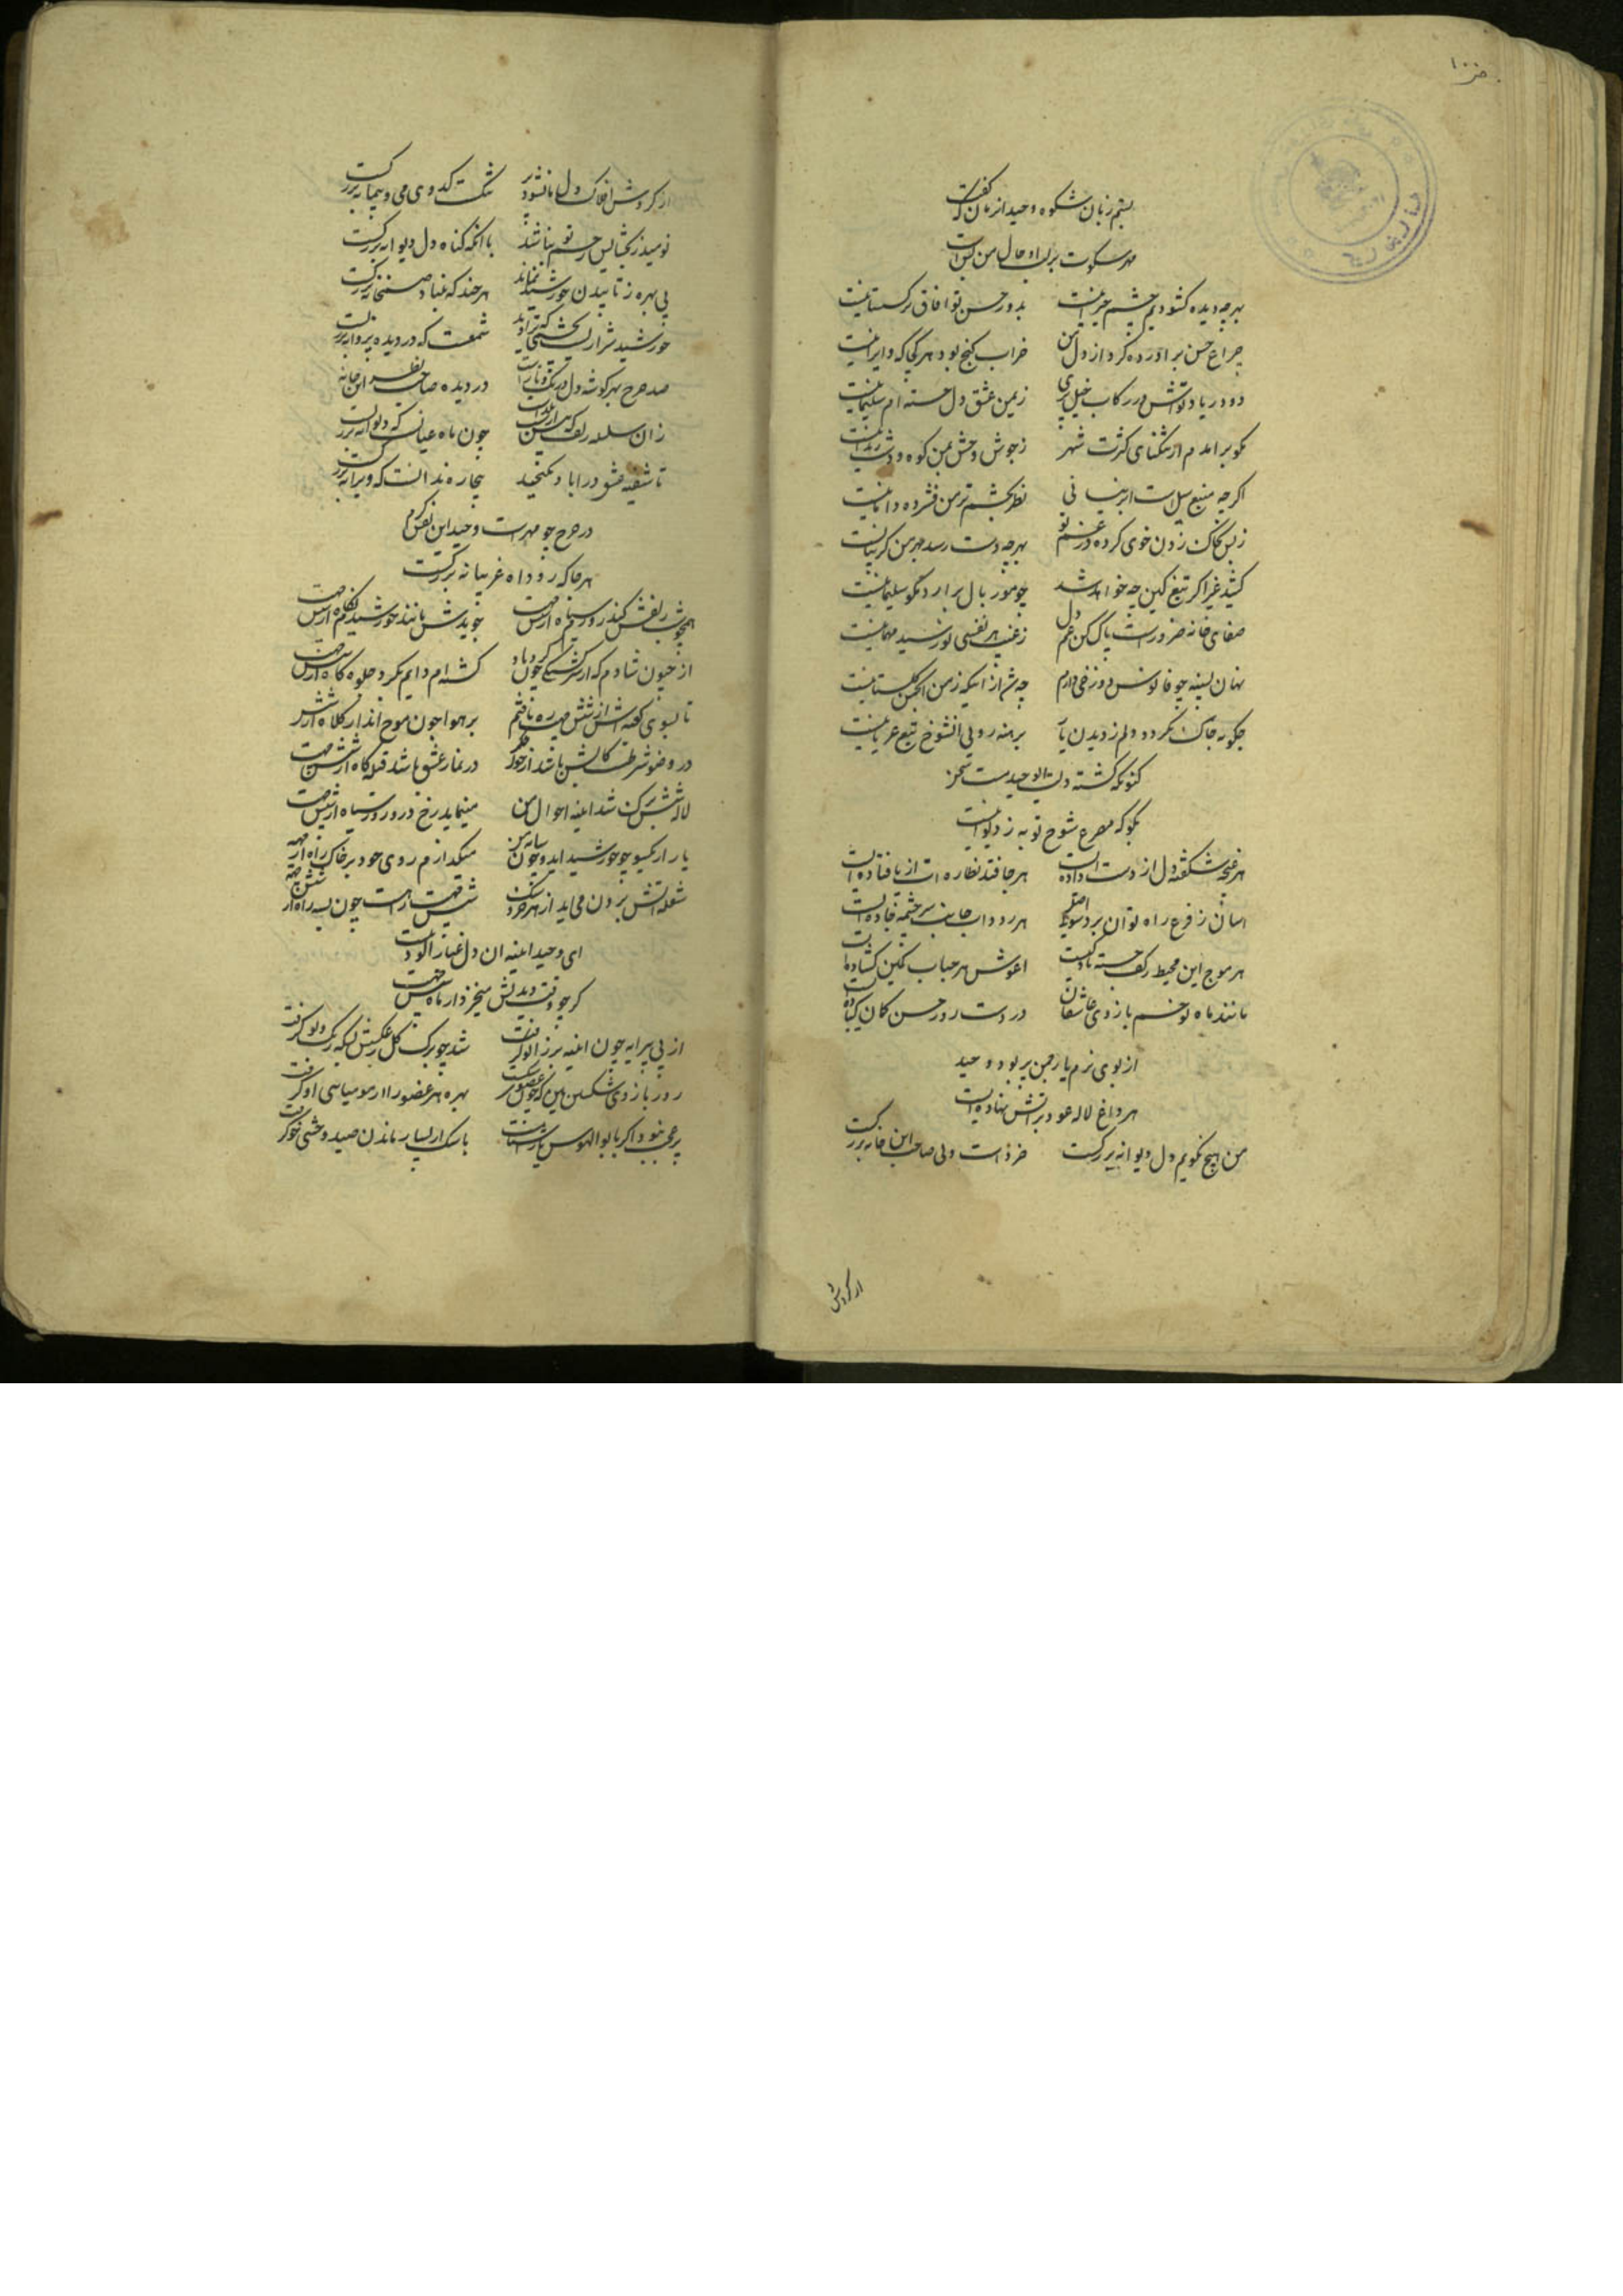 بستم زبان شکوه وحید از زبان که گفت
مهر سکوت بر لب او حال من بس است
بهر چه دیده کشودیم چشم حیرانیست بدور حسن تو افاق نرکستانیست
چراغ حسن بر آورده کرد از دل من خراب کنج بود هر کجا که ویرانیست
دو در یاد تواتش در رکاب خیل پری زیمن عشق دل خسته ام سلیمانیست
مکو برامدم از تنکنای کثرت شهر ز جوش وحش بمن کوه و دشت زندانیست
اکرچه منبع سیل است ابر نیسانی نظر بچشم تر من فشرده دامانیست
ز بس بچاک زدن خوی کرده در غم تو بهر چه دست رسد بهر من کریبانیست
کشید غیر اکر تیغ کین چه خواهد شد چو مور بال برارد مکو سلیمانیست
صفای خانه ضرور است پاک کن غم دل ز غیب هر نفسی نو رسید مهمانیست
نهان بسینه چو فانوس دوزخی دارم چه شد از اینکه ز من انجمن کلستانیست
چکونه چاک نکردد دلم ز دیدن یار برهنه رویی انشوخ تیغ عریانیست
کنونکه کشته دلت ای وحید مست سخن
بکو که مصرع شوخ تو به ز دیوانیست
هر غنچه شکفته دل از دست داده ایست هر جا فتد نظاره ات از پا فتاده ایست
اسان ز فرع راه توان برد سوی اصل هر رود اب جانب سرچشمه جاده ایست
هر موج این محیط کف خسته یا دلیست اغوش هر حباب نکین کشاده ایست
مانند ماه نو خم بازوی عاشقان در دست زور حسن کمان کباده ایست
از بوی بزم یار چمن پر بود وحید
هر داغ لاله عود بر اتش نهاده ایست
من هیچ نکویم دل دیوانه بزرکست خرد است ولی صاحب این خانه بزرکست
از کردش
از کردش افلاک دل ما نشود پر تنک است کدوی می و پیمانه بزرکست
نومید ز بخشایش رحم تو نباشد با انکه کناه دل دیوانه بزرکست
بی بهره ز تابیدن خورشید نماند هر چند که بنیاد صنمخانه بزرکست
خورشید شراریست بچشمی که تو دید شمعست که در دیده پروانه بزرکست
صد چرخ بهر کوشه دل در تک و تاز است در دیده صاحب نظر این خانه
زان سلسله زلف که بر ارض چون ماه عیانست که دیوانه بزرکست
تا شیفته عشق در اباد نکنجید بیچاره ندانست که ویرانه بزرکست
در چرخ چو مهر است وحید این نفس کرم
هر جا که رود اه غریبانه بزرکست
همچو شب زلفش کند روز سیاهم از شش جهت جوید مانند خورشید نکاهم از شش جهت
از جنون شادم که از سرکشتکی چون کرد باد کشته ام دایم بکرد جلوه کاه از شش جهت
تا بسوی کعبه اش از شش جهت ره یافتم بر هوا چون موج اندازم کلاه از شش جهت
در وضو شرطست کابش باشد از خون جکر در نماز عشق باشد قبله کاه از شش جهت
لاله شش برک شد اینه احوال من مینماید رخ در و روز سیاه از شش جهت
یار از کیسو چو خورشید اید و چون سایه من میکدازم روی خود بر خاک راه از شش جهت
شعله اتش برون می اید از هر خرد سنک شش جهت
ای وحید اینه ان دل غبار الود نیست
کر چو وقت دیدنش میخیزد از ما شش جهت
از پی پیرایه چون اینه بر زانو کرفت شد چو برک کل ز عکسش بسکه رنک و بو کرفت
زور بازوی شکستن بین که چون عضوی شکست بهره هر عضو را از مومیایی او کرفت
پر عجب نبود اکر با بوالهوس یار اشناست باسک از بسیار ماندن صید وحشی خو کرفت